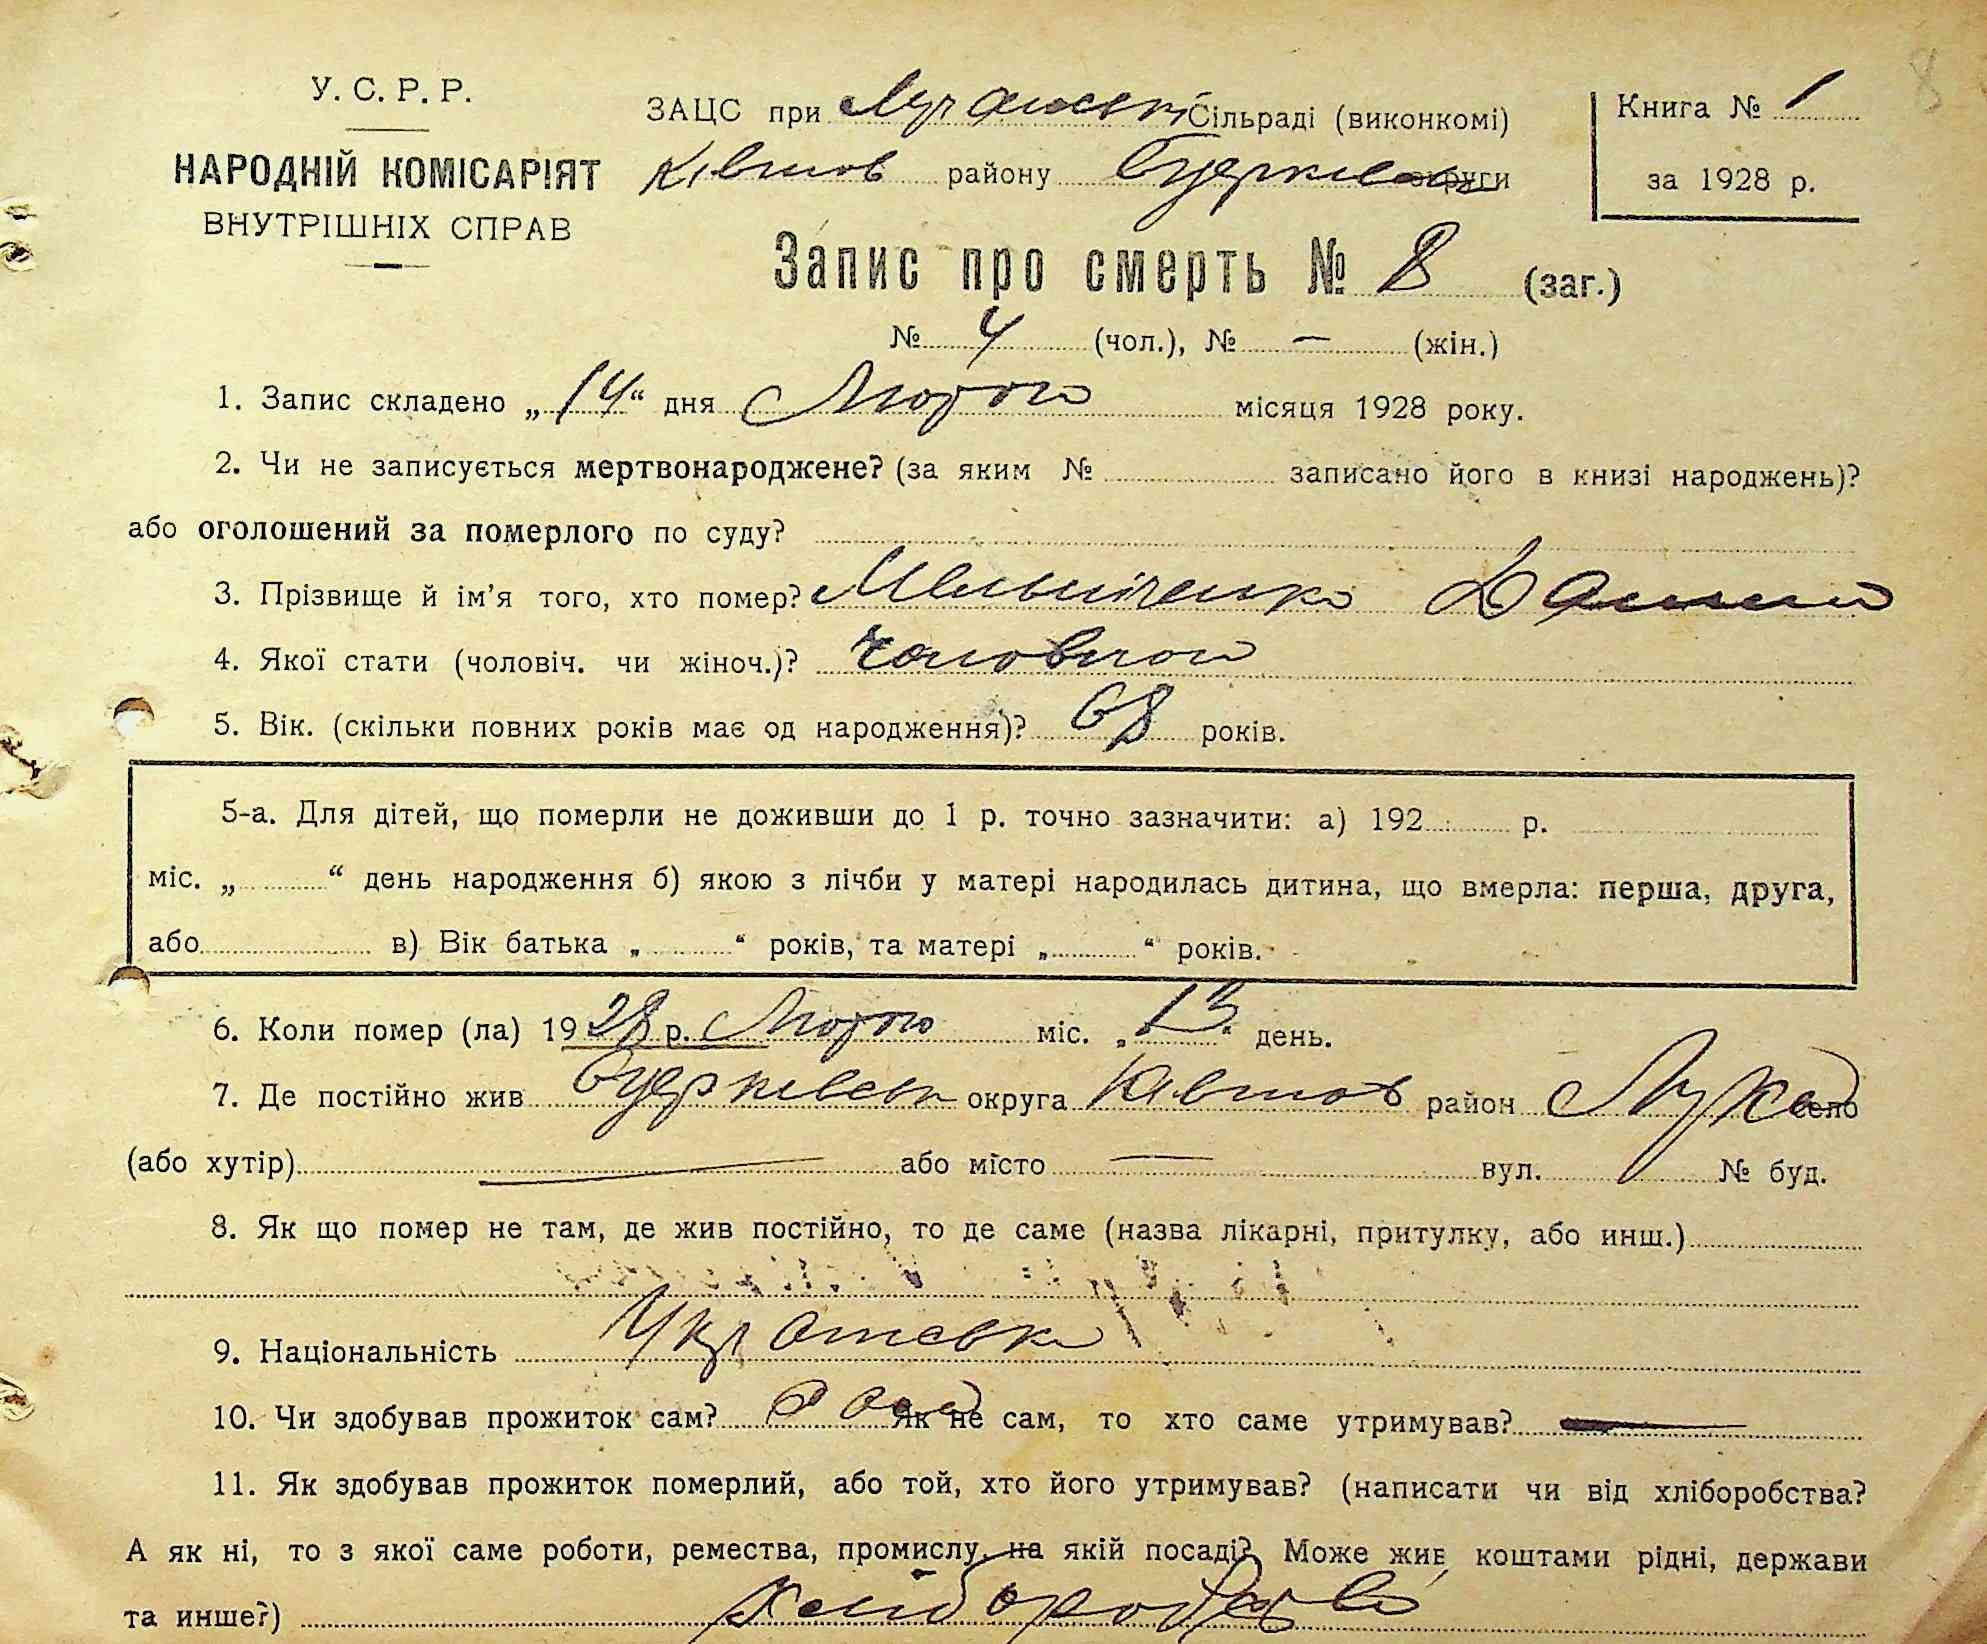 У. С. Р. Р.
НАРОДНІЙ КОМІСАРІЯТ
ВНУТРІШНІХ СПРАВ
ЗАЦС при Лучанські Сільраді (виконкомі)
району округи
Книга № 1
за 1928 р.
8
Запис про смерть № 8 (заг.)
№ 4 (чол.), № — (жін.)
1. Запис складено „14“ дня Лютого місяця 1928 року.
2. Чи не записується мертвонароджене? (за яким № записано його в книзі народжень)?
або оголошений за померлого по суду?
3. Прізвище й ім'я того, хто помер? Мельніченко Данило
4. Якої стати (чоловіч. чи жіноч.)?
5. Вік. (скільки повних років має од народження)? 68 років.
5-а. Для дітей, що померли не доживши до 1 р. точно зазначити: а) 192 р.
міс. „ “ день народження б) якою з лічби у матері народилась дитина, що вмерла: перша, друга,
або в) Вік батька „ “ років, та матері „ “ років.
6. Коли помер (ла) 1928 р. Лютого міс. „13“ день.
7. Де постійно жив округа район Лука село
(або хутір) — або місто — вул. № буд.
8. Як що помер не там, де жив постійно, то де саме (назва лікарні, притулку, або инш.)
9. Національність
10. Чи здобував прожиток сам? Сам Як не сам, то хто саме утримував? —
11. Як здобував прожиток померлий, або той, хто його утримував? (написати чи від хліборобства?
А як ні, то з якої саме роботи, ремества, промислу, на якій посаді? Може жив коштами рідні, держави
та инше?) хліборобство